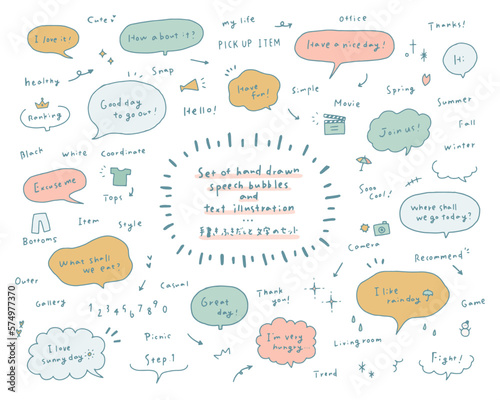 Cute
my life
Office
Thanks!
I love it!
How about it?
PICK UP ITEM
Have a nice day!
Hi
healthy
Snap
Ranking
Good day
to go out!
Have
fun!
Simple
Spring
Hello!
Movie
Summer
Join us!
Fall
Black
White
Coordinate
Winter
Set of hand drawn
speech bubbles
and
text illustration
...
手書きふきだしと文字のセット
Excuse me
Tops
Sooo
Cool!
Where shall
we go today?
Bottoms
Item
Style
Camera
What shall
we eat?
Recommend
Outer
Casual
Gallery
1 2 3 4 5 6 7 8 9 0
Great
day!
Thank
you!
I like
rainday
Game
I love
sunny day
Picnic
Step.1
I'm very
hungry
Living room
Trend
Fight!
Adobe Stock | #574977370